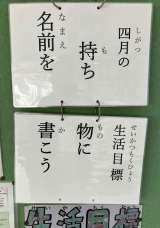 四月の
しがつ
生活目標
せいかつもくひょう
持ち
も
物に
もの
名前を
なまえ
書こう
か
生活目標